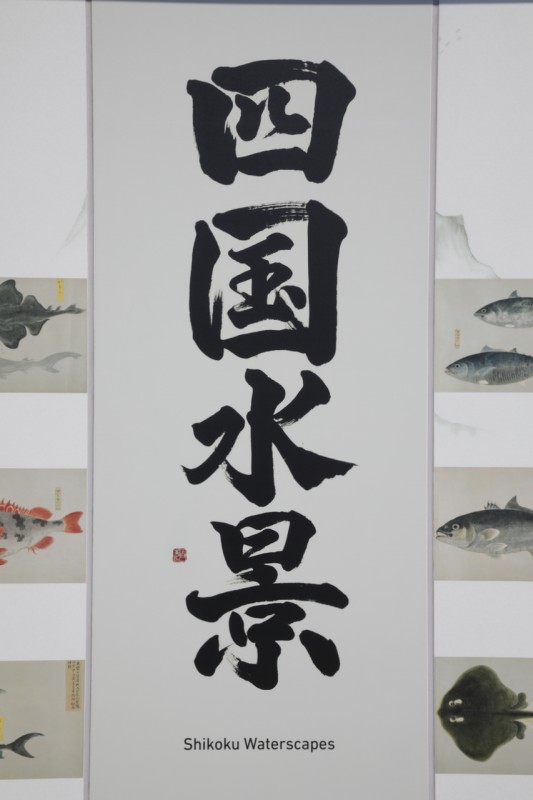 四国水景
Shikoku Waterscapes